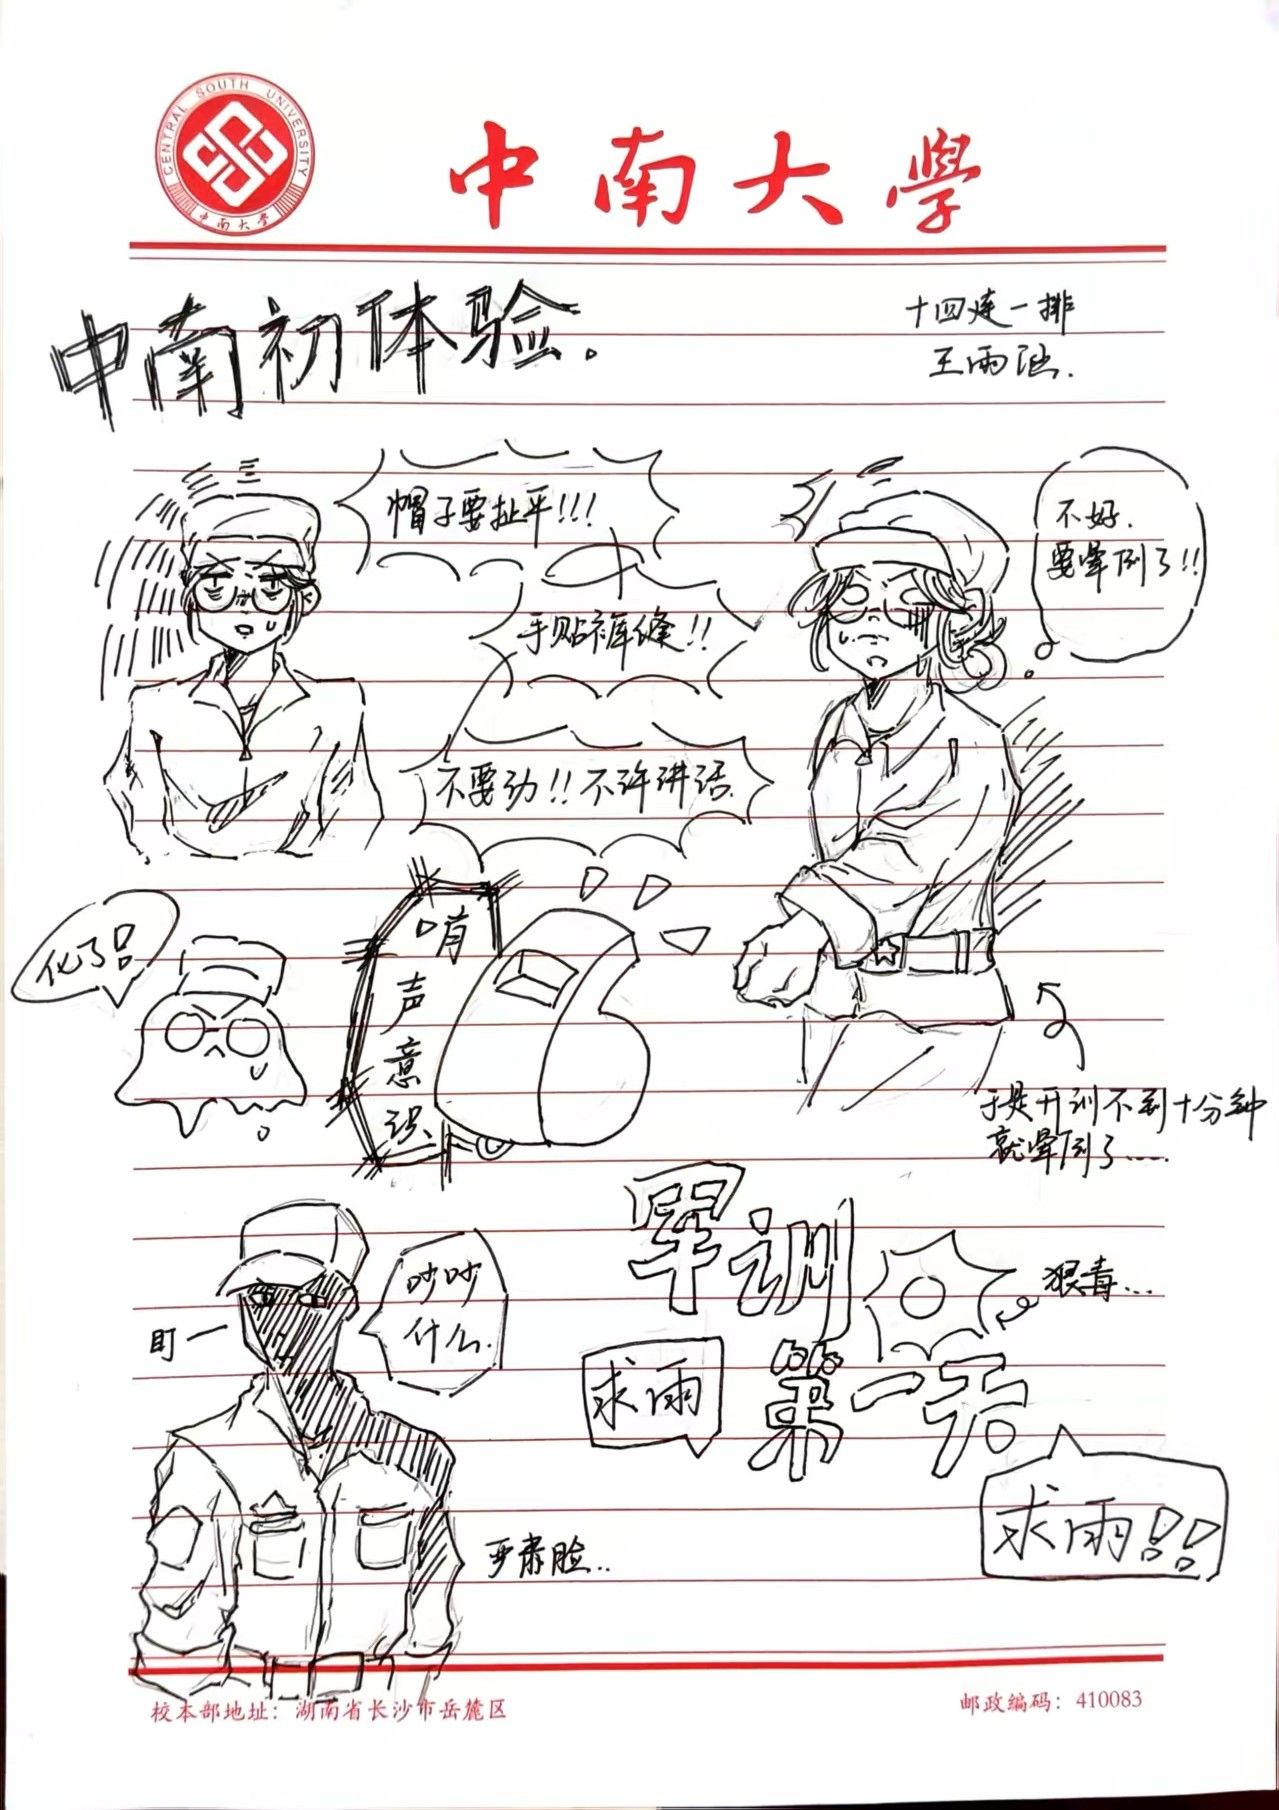 CENTRAL SOUTH UNIVERSITY
中南大学
中南大學
中南初体验。
十四连一排
王雨涵.
帽子要扯平!!!
手贴裤缝!!
不要动!!不许讲话.
不好.
要晕倒了!!
化了!
哨
声
意
识
于是开训不到十分钟
就晕倒了……
盯一
吵吵
什么.
严肃脸..
军训
第一天
狠毒...
求雨
求雨!!
校本部地址：湖南省长沙市岳麓区
邮政编码：410083